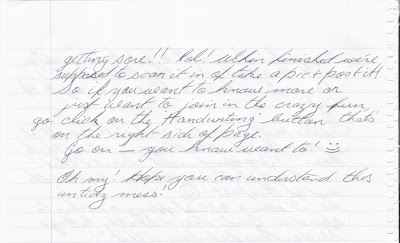 getting sore!! Lol! When finished we're
supposed to scan it in of take a pic + post it!
So if you want to know more or
just want to join in the crazy fun,
go click on the "Handwriting" button that's
on the right side of page.
Go on — you know want to! :)
Oh my! Hope you can understand this
untidy mess!